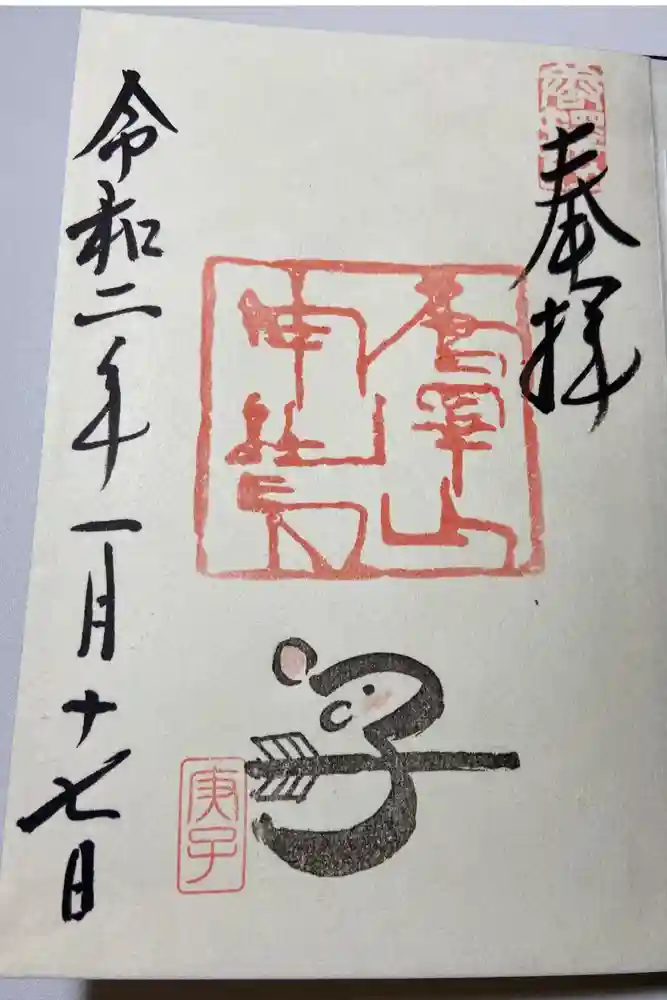 奉拝
唐澤山
神社印
庚子
令和二年一月十七日